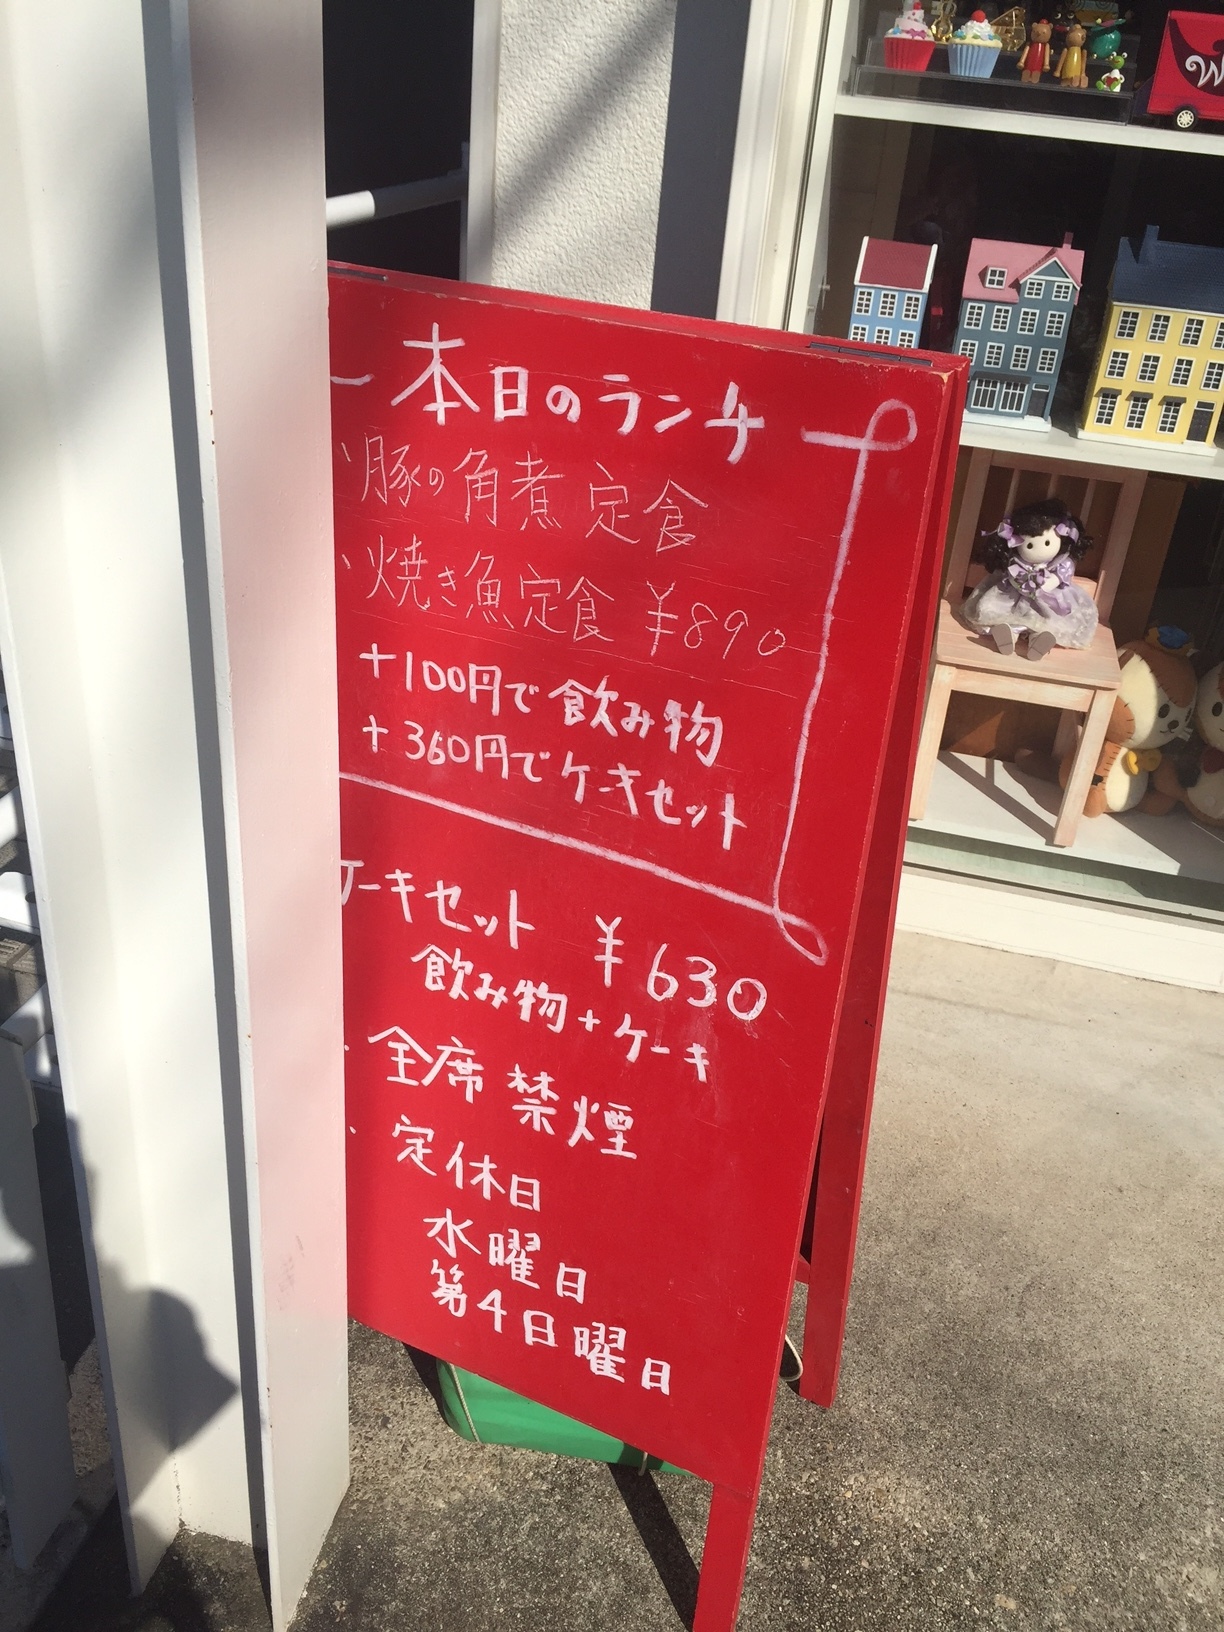 本日のランチ
・豚の角煮定食
・焼き魚定食 ¥890
+100円で飲み物
+360円でケーキセット
ケーキセット ¥630
飲み物+ケーキ
・全席禁煙
・定休日
水曜日
第4日曜日